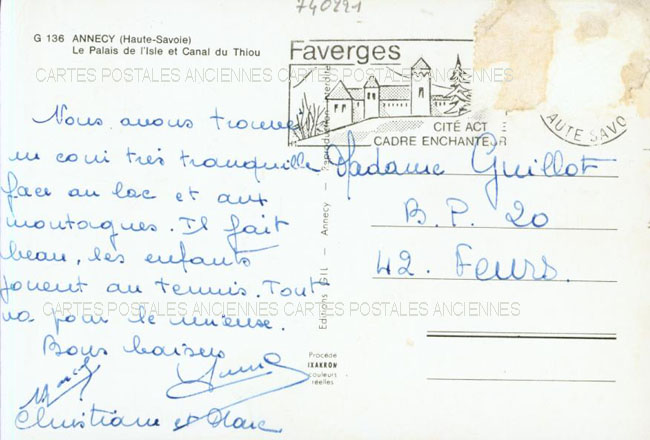 740221
G 136 ANNECY (Haute-Savoie)
Le Palais de l'Isle et Canal du Thiou
Faverges
CITÉ ACT
CADRE ENCHANTEUR
AUTE SAVO
CARTES POSTALES ANCIENNES CARTES POSTALES ANCIENNES
Nous avons trouvé
un coin très tranquille
face au lac et aux
montagnes. Il fait
beau, les enfants
jouent au tennis. Tout
va pour le mieux.
Bons baisers
Christiane et Marc
Madame Guillot
B.P. 20
42. Feurs.
CARTES POSTALES ANCIENNES CARTES POSTALES ANCIENNES
Editions Gil - Annecy - Reproduction interdite
Procédé
IXAKRON
couleurs
réelles